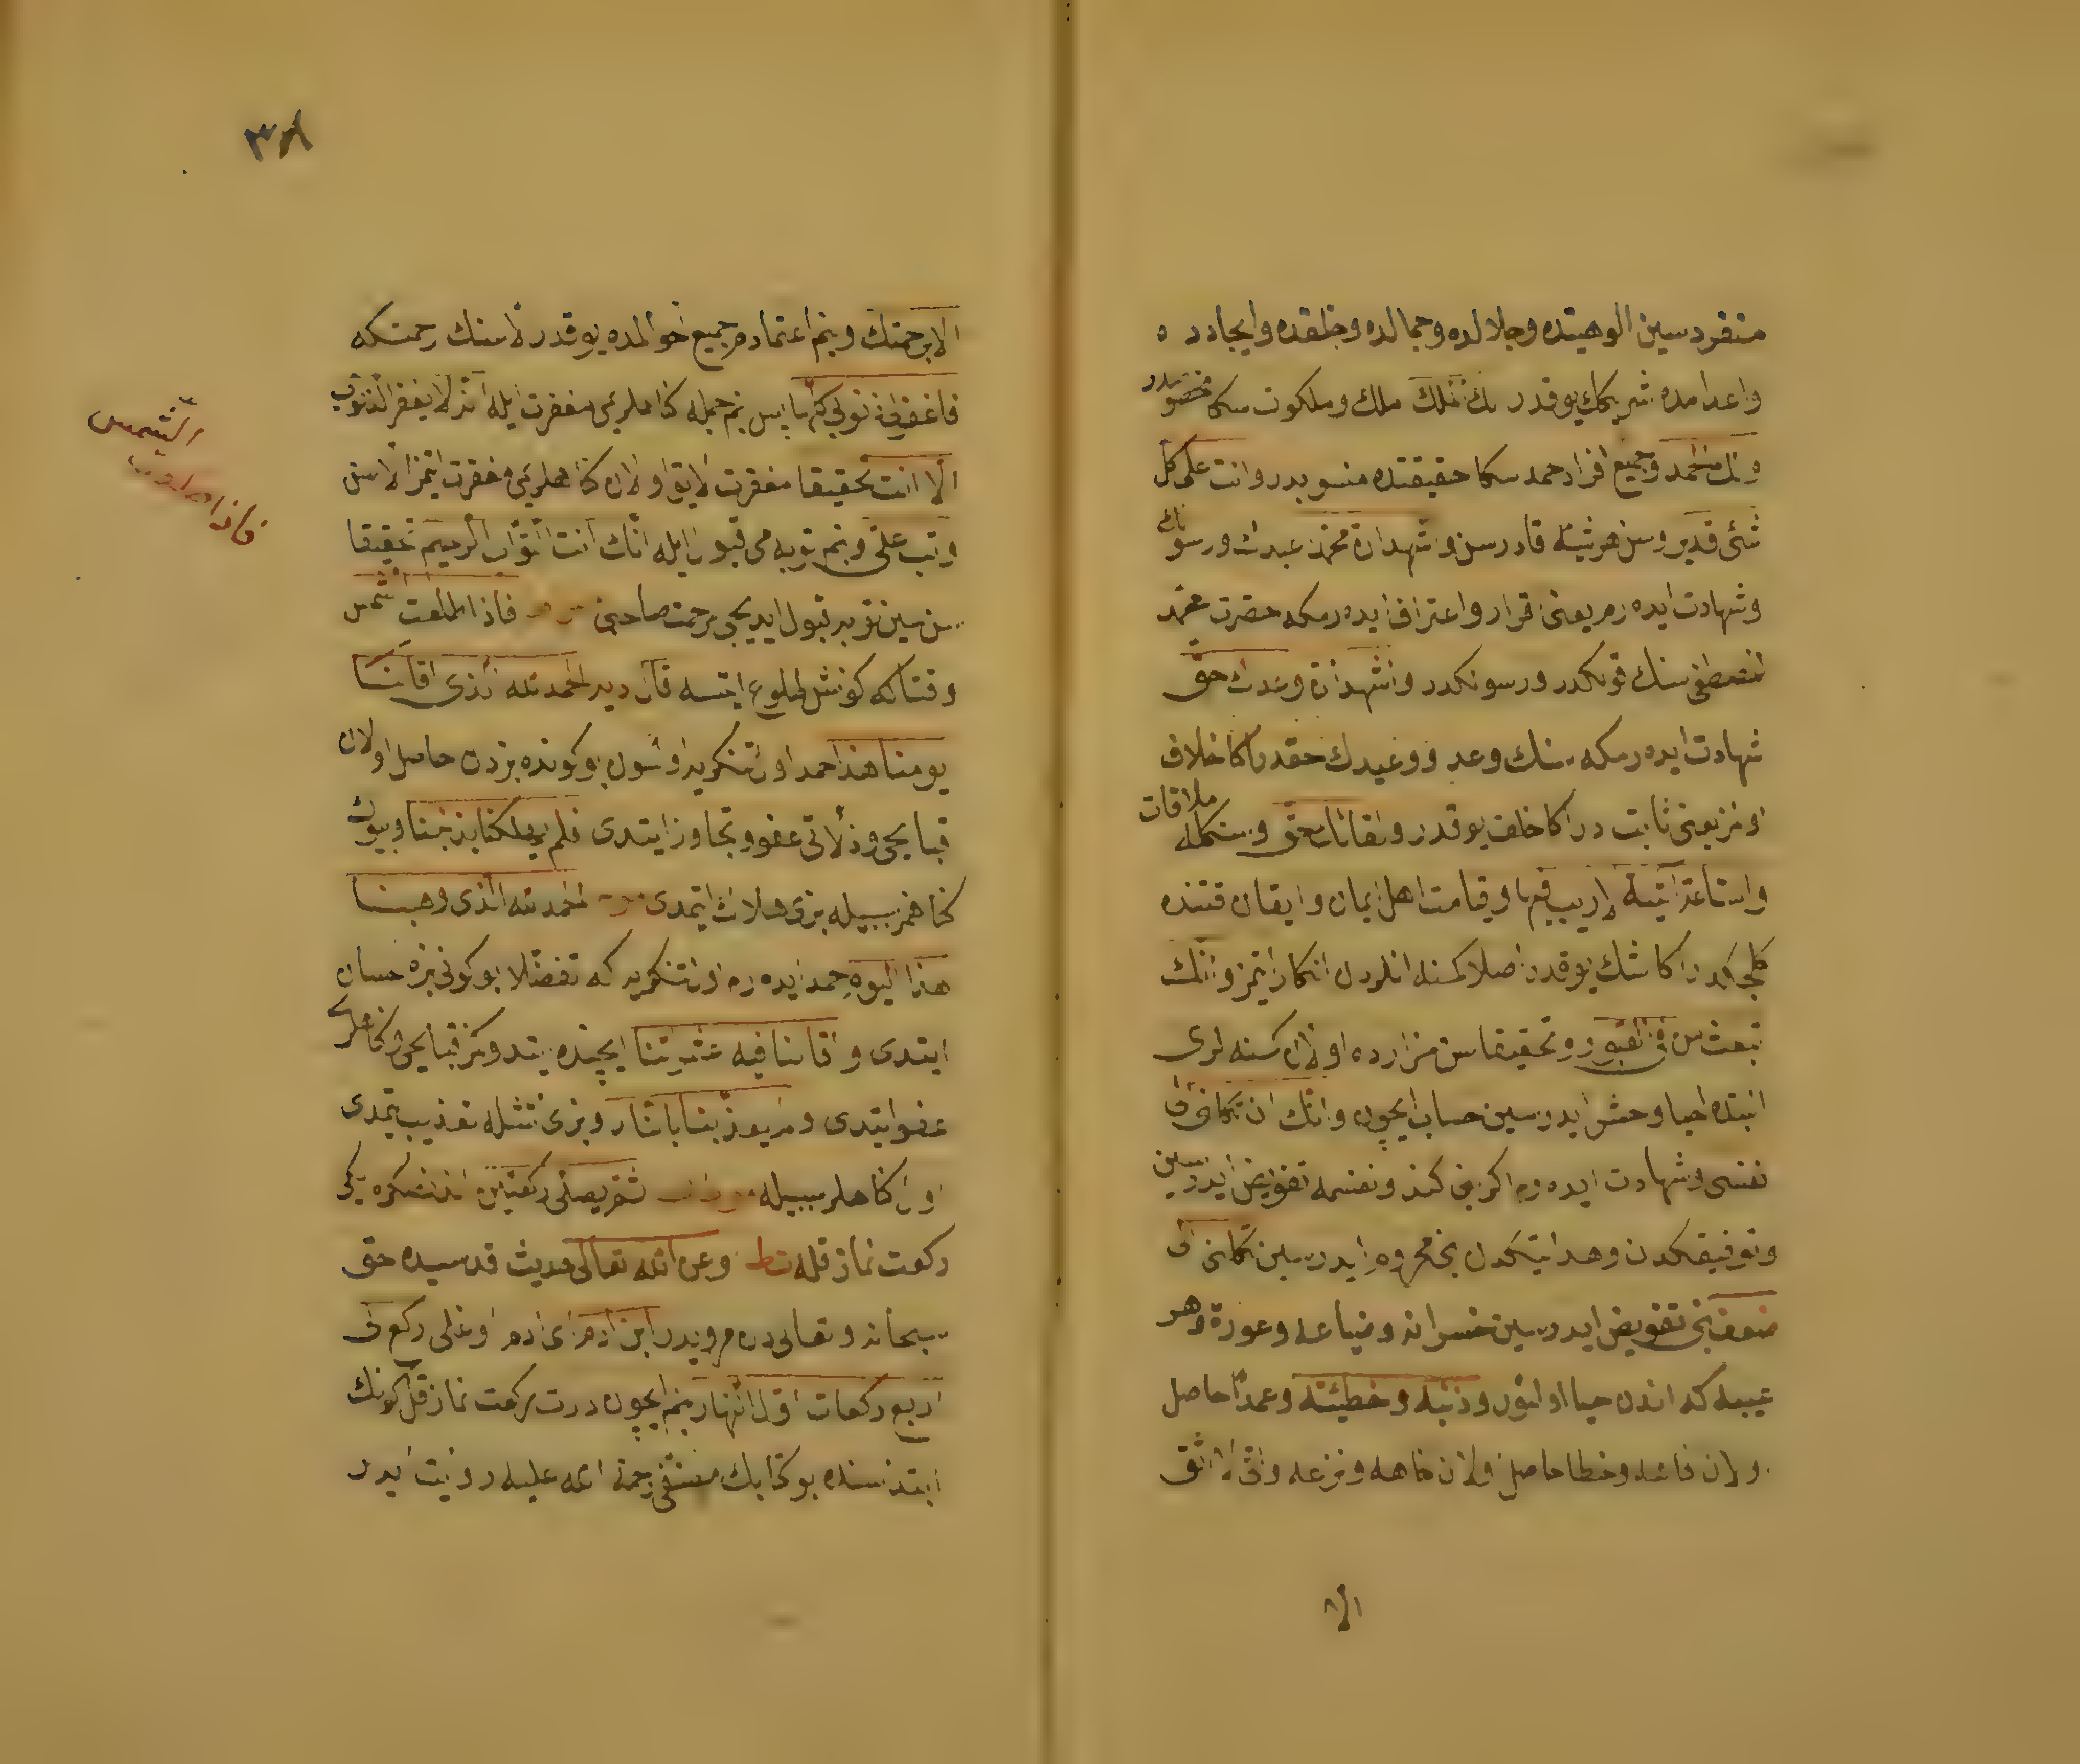 منفردسين الوهيتده وجلالده وجمالده وخلقده وايجادده
واعدامده شريكك يوقدر لك الملك ملك وملكوت سكا مخصوصدر
ولك الحمد وجميع افراد حمد سكا حقيقتده منسوبدر وانت على كل
شئ قدير وسن هر شيئه قادرسن واشهد ان محمد عبدك ورسولك
وشهادت ايده رم يعنى اقرار واعتراف ايده رمكه حضرت محمد
المصطفى سنك قولكدر ورسولكدر واشهد ان وعدك حق
شهادت ايده رمكه سنك وعد ووعيدك حقدر اكا خلاف
اولمز يعنى ثابت در اكا خلف يوقدر ولقاءك حق وسنكله ملاقات
والساعة اتية لا ريب فيها وقيامت اهل ايمان وايقان قتنده
كلجكدر اكا شك يوقدر اصلا كمسنه انلردن انكار ايتمز وانك
تبعث من فى القبور وتحقيقا سن مزارده اولان كمسنه لرى
البته احيا وحشر ايدرسين حساب ايچون وانك ان تكلنى الى
نفسى وشهادت ايده رم اكر بنى كندو نفسمه تفويض ايدرسين
وتوفيقكدن وهدايتكدن بنى محروم ايدرسين تكلنى الى
ضعف بنى تفويض ايدرسين خسرانه وضياعه وعورة وهر
عيبه كه اندن حيا اولنور وذنبه وخطيئة وعمدا حاصل
اولان فاحشه وخطا حاصل اولان خاهه ونزعه وانى لا اثق
الا
٣٨
الا برحمتك وبنم اعتمادم جميع احوالمده يوقدر الا سنك رحمتكه
فاغفر لى ذنوبى كلها پس بنم جمله كناهلرمى مغفرت ايله انه لا يغفر الذنوب
الا انت تحقيقا مغفرت لايق اولان كناهلرمى مغفرت ايتمز الا سن
وتب على وبنم توبه مى قبول ايله انك انت التواب الرحيم تحقيقا
سن سين توبه قبول ايديجى مرحمت صاحبى فاذا طلعت الشمس
وقتاكه كونش طلوع ايتسه قال ديه الحمد لله الذى اقالنا
يومنا هذا حمد اول تنكرى يه اولسون بو كونده بزدن حاصل اولان
قبايحى وزلاتى عفو وتجاوز ايتدى فلم يهلكنا بذنبنا وبيوك
كناهمز سببيله بزى هلاك ايتمدى الحمد لله الذى وهبنا
هذا اليوم حمد ايده رم اول تنكرى يه كه تفضلا بو كونى بزه احسان
ايتدى واقالنا فيه عثرتنا ايچنده ايتدوكمز قبايحى وكناهلرى
عفو ايتدى ولم يعذبنا بالنار وبزى آتشله تعذيب ايتمدى
اول كناهلر سببيله ثم يصلى ركعتين اندنصكره ايكى
ركعت نماز قله ط وعن الله تعالى حديث قدسيده حق
سبحانه وتعالى دن مرويدر ابن ادم اى ادم اوغلى ركع لى
اربع ركعات اول النهار بنم ايچون درت ركعت نماز قل كونك
ابتداسنده بو كتابك مصنفى رحمة الله عليه روايت ايدر
الشمس
فاذا طلعت